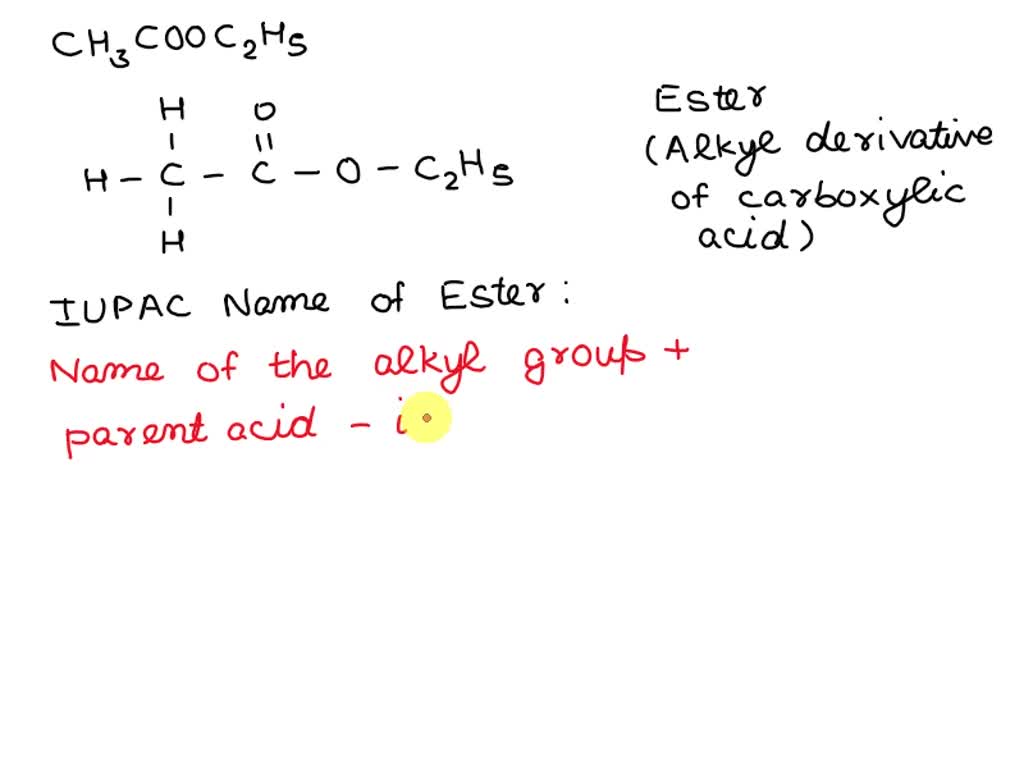 CH₃COOC₂H₅
H O
H - C - C - O - C₂H₅
H
Ester
(Alkyl derivative
of carboxylic
acid)
IUPAC Name of Ester :
Name of the alkyl group +
parent acid - i